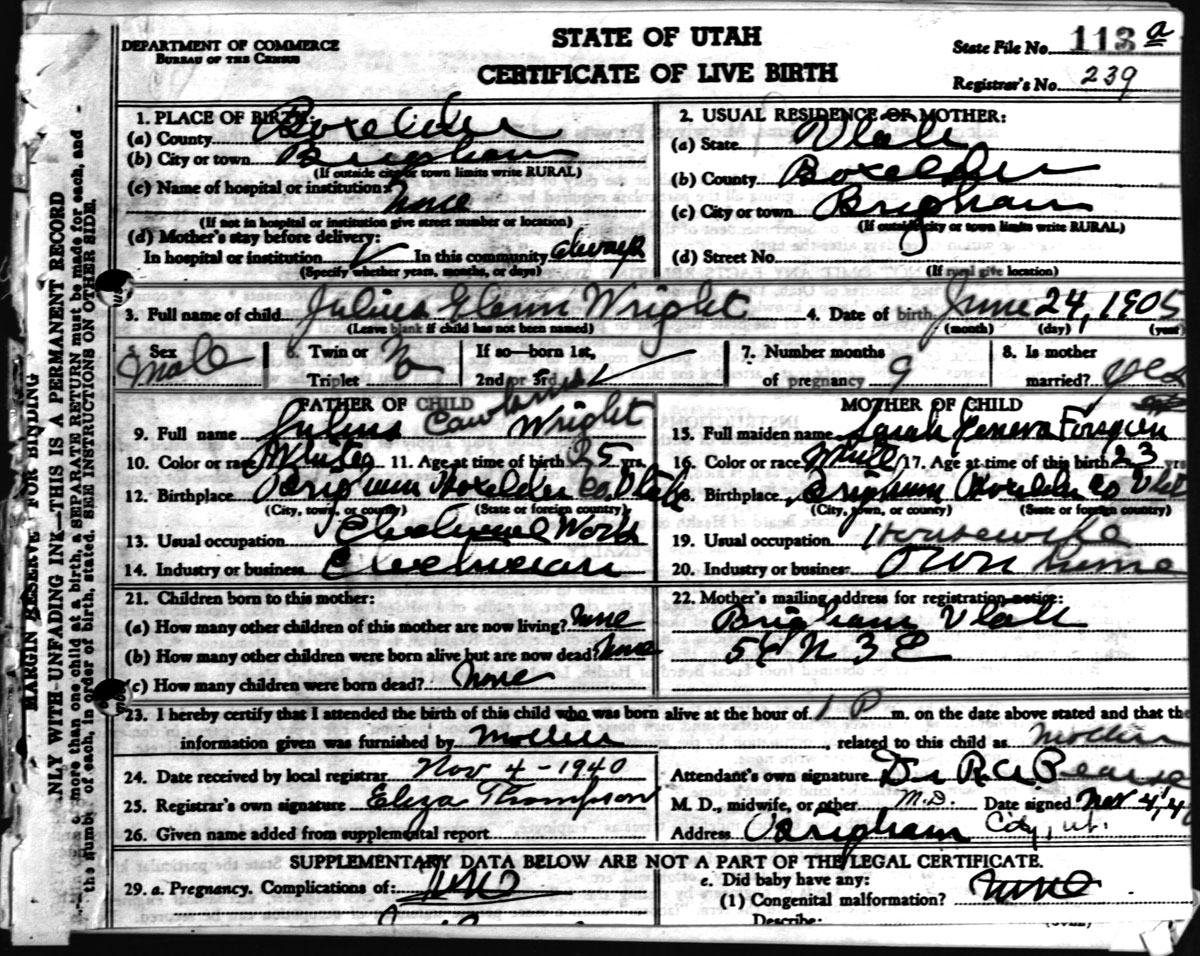 DEPARTMENT OF COMMERCE
BUREAU OF THE CENSUS
STATE OF UTAH
CERTIFICATE OF LIVE BIRTH
State File No. 113 a
Registrar's No. 239
MARGIN RESERVE FOR BINDING
ONLY WITH UNFADING INK—THIS IS A PERMANENT RECORD
more than one child at a birth, a SEPARATE RETURN must be made for each, and
the number of each, in order of birth, stated. SEE INSTRUCTIONS ON OTHER SIDE.
1. PLACE OF BIRTH:
(a) County Boxelder
(b) City or town Brigham
(If outside city or town limits write RURAL)
(c) Name of hospital or institution: None
(If not in hospital or institution give street number or location)
(d) Mother's stay before delivery:
In hospital or institution ✓ In this community always
(Specify whether years, months, or days)
2. USUAL RESIDENCE OF MOTHER:
(a) State Utah
(b) County Boxelder
(c) City or town Brigham
(If outside city or town limits write RURAL)
(d) Street No.
(If rural give location)
3. Full name of child Julius Glenn Wright
(Leave blank if child has not been named)
4. Date of birth June 24, 1905
(month) (day) (year)
5. Sex Male
6. Twin or Triplet No
If so—born 1st, 2nd or 3rd
7. Number months of pregnancy 9
8. Is mother married? yes
FATHER OF CHILD
9. Full name Julius Wright
10. Color or race White 11. Age at time of birth 25 yrs.
12. Birthplace Brigham Boxelder Co. Utah
(City, town, or county) (State or foreign country)
13. Usual occupation Electrical Work
14. Industry or business Electrician
MOTHER OF CHILD
15. Full maiden name Sarah Geneva Forsgren
16. Color or race White 17. Age at time of this birth 23 yrs
18. Birthplace Brigham Boxelder Co Utah
(City, town, or county) (State or foreign country)
19. Usual occupation Housewife
20. Industry or business Own home
21. Children born to this mother:
(a) How many other children of this mother are now living? None
(b) How many other children were born alive but are now dead? None
(c) How many children were born dead? None
22. Mother's mailing address for registration notice:
Brigham Utah
N 3 E
23. I hereby certify that I attended the birth of this child who was born alive at the hour of 1 P m. on the date above stated and that the
information given was furnished by Mother, related to this child as Mother
24. Date received by local registrar Nov 4 - 1940
25. Registrar's own signature Eliza Thompson
26. Given name added from supplemental report
Attendant's own signature Dr R A Pearse
M. D., midwife, or other M.D. Date signed Nov 4, '40
Address Brigham City, Ut.
SUPPLEMENTARY DATA BELOW ARE NOT A PART OF THE LEGAL CERTIFICATE.
29. a. Pregnancy. Complications of:
e. Did baby have any:
(1) Congenital malformation? None
Describe: